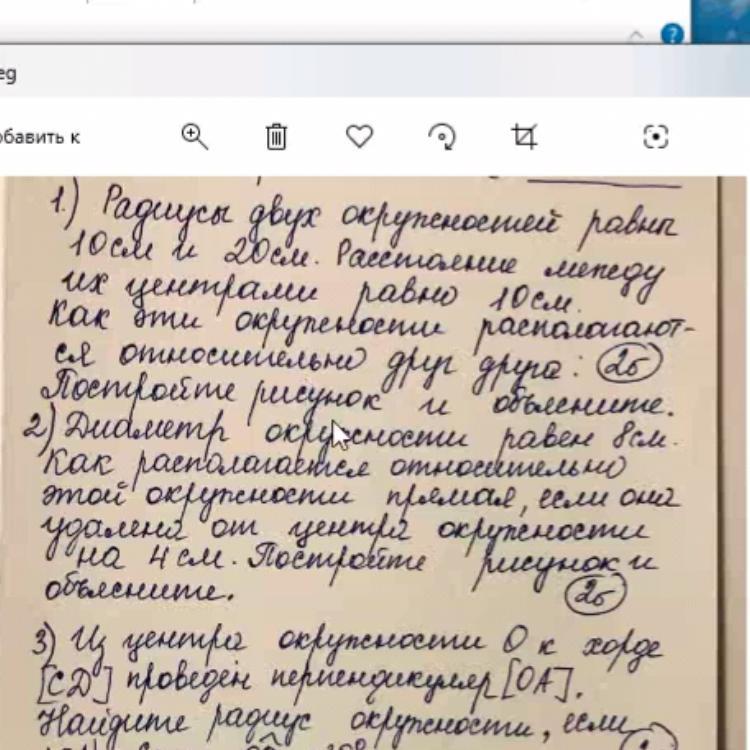 eg
обавить к
?
1.) Радиусы двух окружностей равны
10см и 20см. Расстояние между
их центрами равно 10см.
Как эти окружности располагают-
ся относительно друг друга: 2б
Постройте рисунок и объясните.
2) Диаметр окружности равен 8см.
Как располагается относительно
этой окружности прямая, если она
удалена от центра окружности
на 4см. Постройте рисунок и
объясните. 2б
3) Из центра окружности О к хорде
[CD] проведён перпендикуляр [OA].
Найдите радиус окружности, если